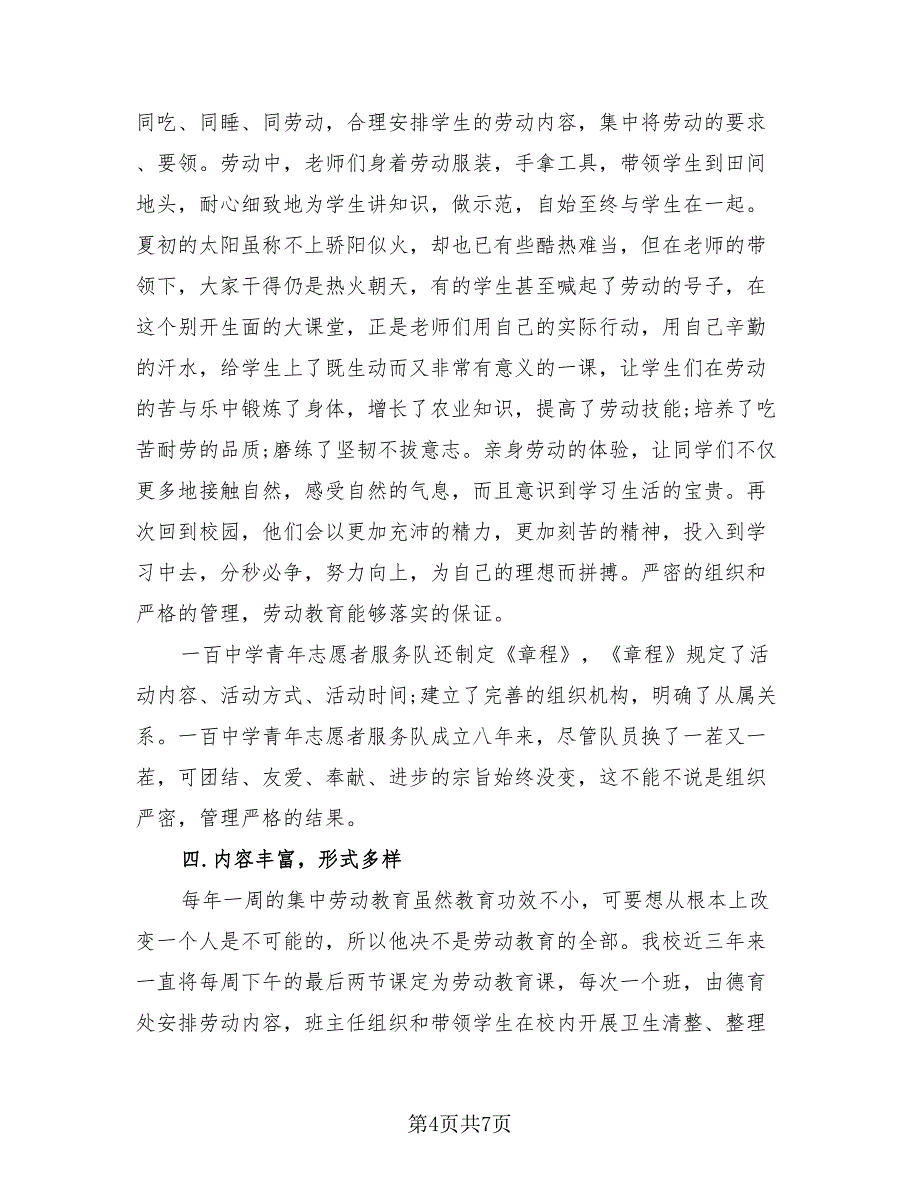 同吃、同睡、同劳动，合理安排学生的劳动内容，集中将劳动的要求
、要领。劳动中，老师们身着劳动服装，手拿工具，带领学生到田间
地头，耐心细致地为学生讲知识，做示范，自始至终与学生在一起。
夏初的太阳虽称不上骄阳似火，却也已有些酷热难当，但在老师的带
领下，大家干得仍是热火朝天，有的学生甚至喊起了劳动的号子，在
这个别开生面的大课堂，正是老师们用自己的实际行动，用自己辛勤
的汗水，给学生上了既生动而又非常有意义的一课，让学生们在劳动
的苦与乐中锻炼了身体，增长了农业知识，提高了劳动技能;培养了吃
苦耐劳的品质;磨练了坚韧不拔意志。亲身劳动的体验，让同学们不仅
更多地接触自然，感受自然的气息，而且意识到学习生活的宝贵。再
次回到校园，他们会以更加充沛的精力，更加刻苦的精神，投入到学
习中去，分秒必争，努力向上，为自己的理想而拼搏。严密的组织和
严格的管理，劳动教育能够落实的保证。
一百中学青年志愿者服务队还制定《章程》，《章程》规定了活
动内容、活动方式、活动时间;建立了完善的组织机构，明确了从属关
系。一百中学青年志愿者服务队成立八年来，尽管队员换了一茬又一
茬，可团结、友爱、奉献、进步的宗旨始终没变，这不能不说是组织
严密，管理严格的结果。
四.内容丰富，形式多样
每年一周的集中劳动教育虽然教育功效不小，可要想从根本上改
变一个人是不可能的，所以他决不是劳动教育的全部。我校近三年来
一直将每周下午的最后两节课定为劳动教育课，每次一个班，由德育
处安排劳动内容，班主任组织和带领学生在校内开展卫生清整、整理
第4页共7页